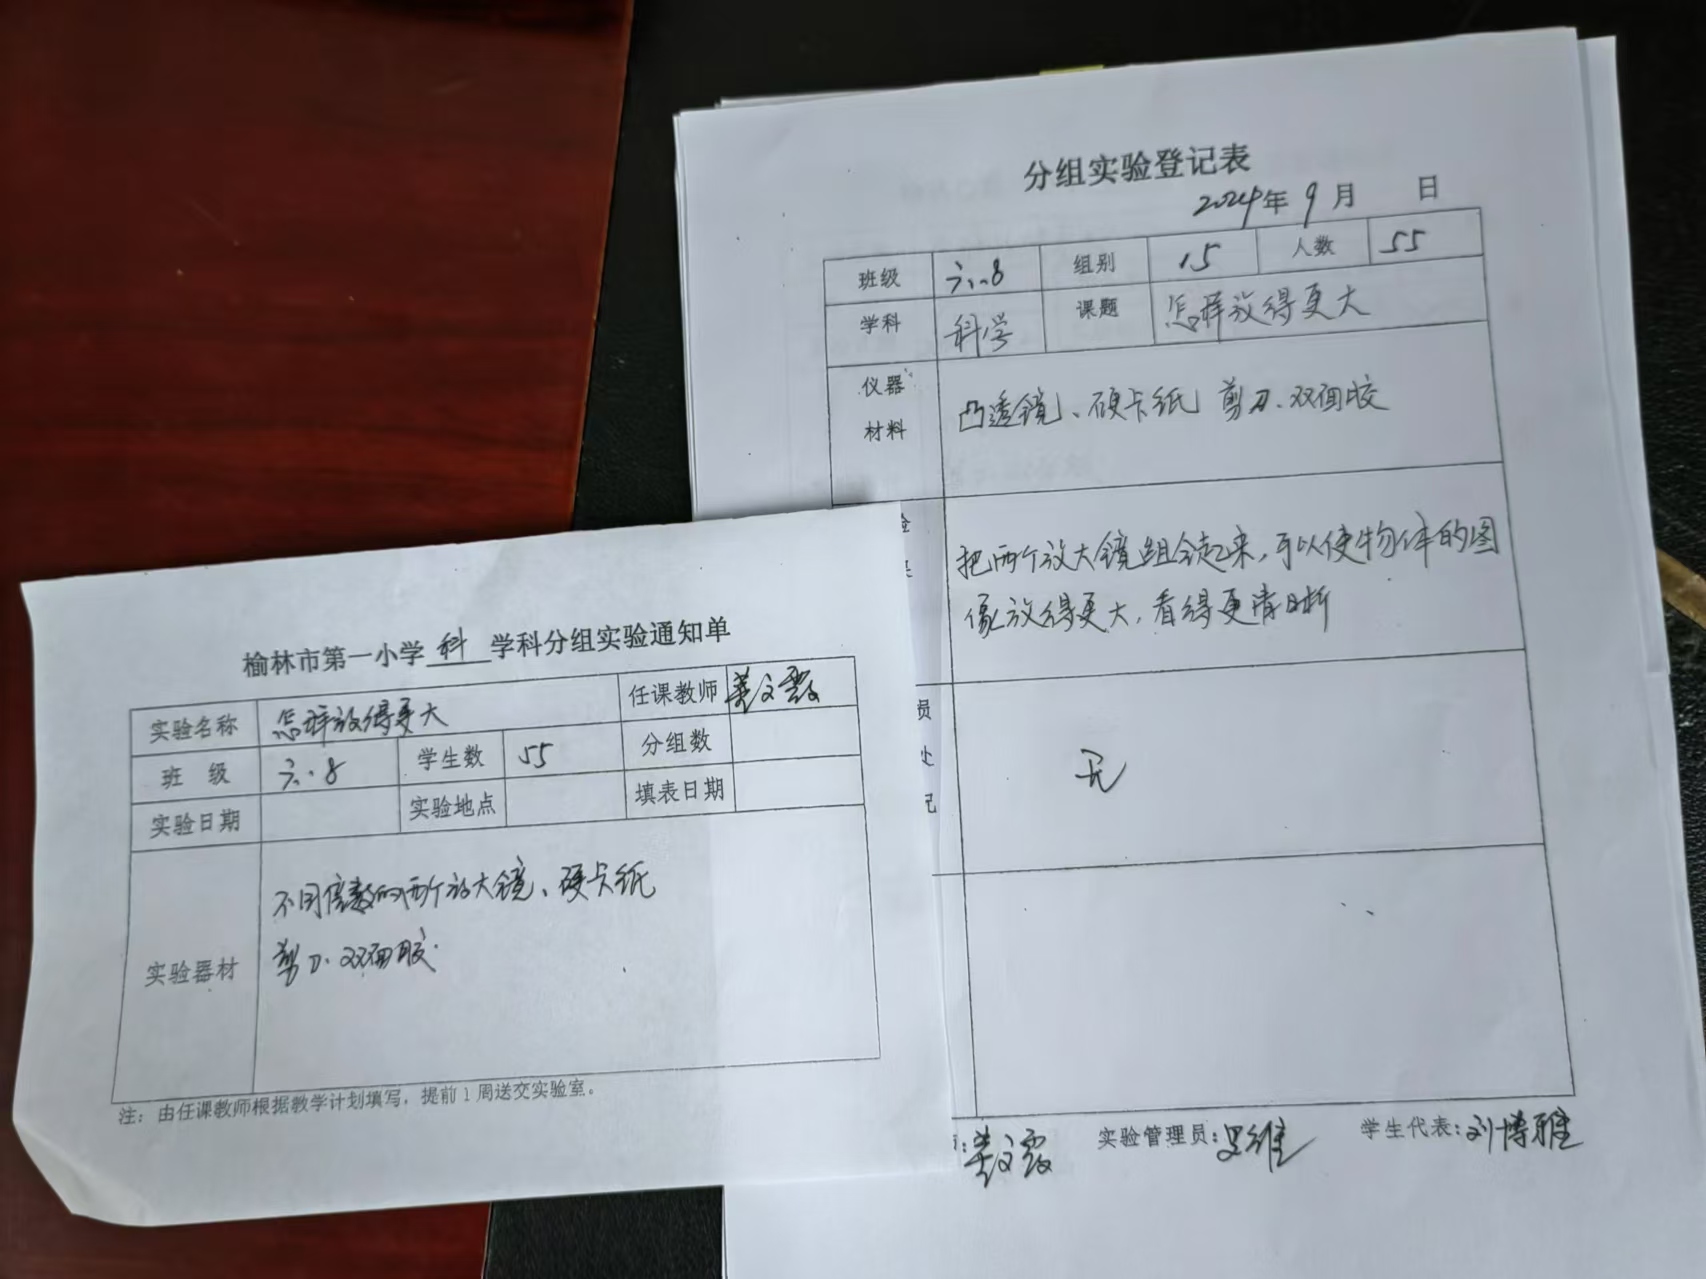 分组实验登记表
2024年 9 月 日
班级 六.8 组别 15 人数 55
学科 科学 课题 怎样放得更大
仪器
材料
凸透镜、硬卡纸 剪刀.双面胶
把两个放大镜组合起来,可以使物体的图
像放得更大,看得更清晰
员
处
记
无
实验管理员: 学生代表:刘博雅
榆林市第一小学 科 学科分组实验通知单
实验名称 怎样放得更大 任课教师
班 级 六.8 学生数 55 分组数
实验日期 实验地点 填表日期
实验器材
不同倍数的两个放大镜、硬卡纸
剪刀.双面胶.
注:由任课教师根据教学计划填写,提前1周送交实验室。